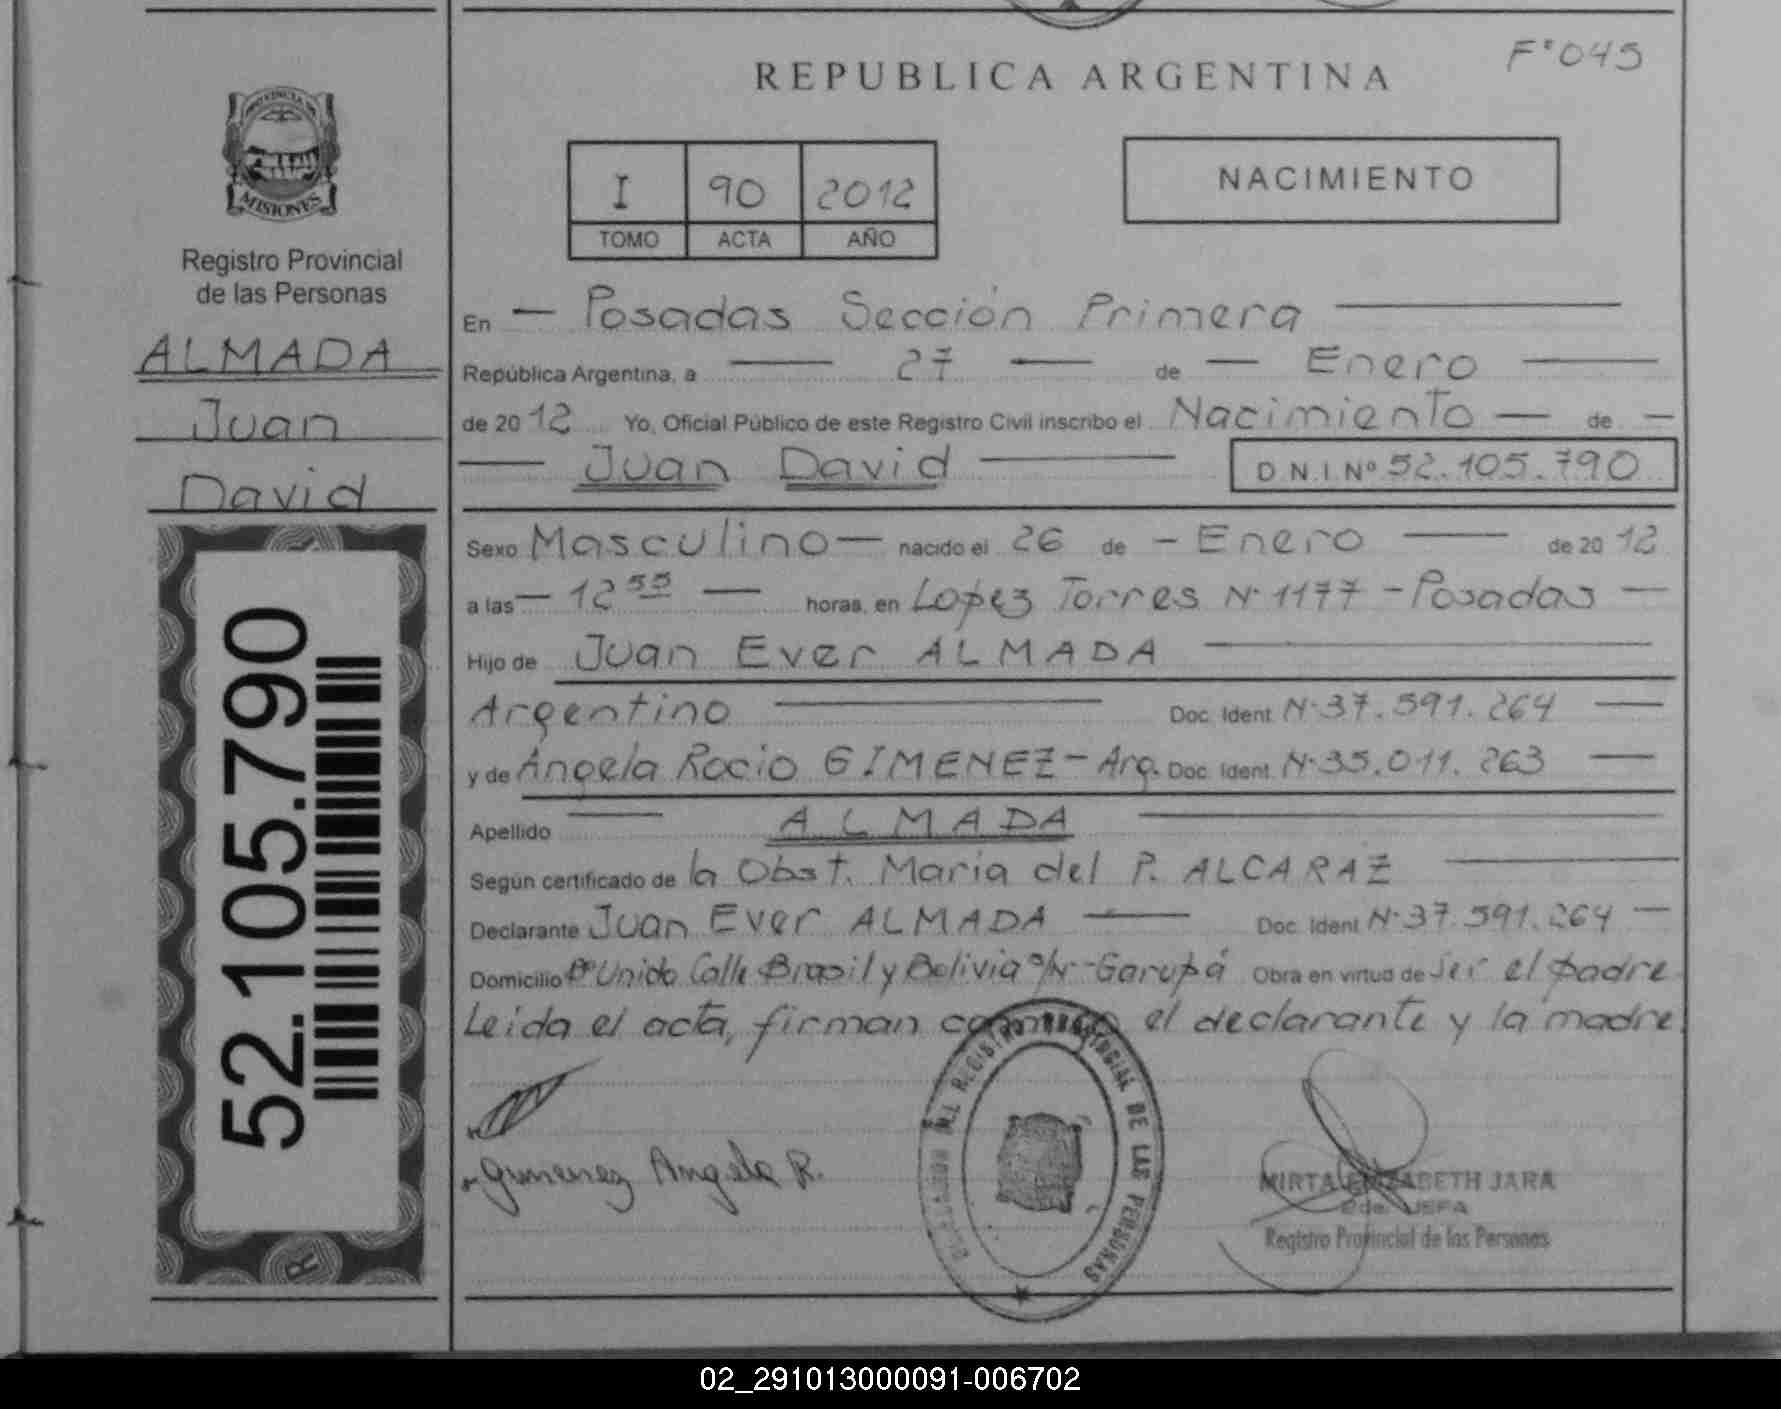 F°045
REPUBLICA ARGENTINA
PROVINCIA DE
MISIONES
Registro Provincial
de las Personas
ALMADA
Juan
David
52.105.790
I 90 2012
TOMO ACTA AÑO
NACIMIENTO
En — Posadas Sección Primera —
República Argentina, a — 27 — de — Enero —
de 2012 Yo, Oficial Público de este Registro Civil inscribo el Nacimiento — de —
— Juan David — D.N.I.Nº 52.105.790
Sexo Masculino — nacido el 26 de — Enero — de 2012
a las — 12 55 — horas, en Lopez Torres N° 1177 - Posadas —
Hijo de Juan Ever ALMADA —
Argentino — Doc. Ident. N° 37.591.264 —
y de Angela Rocio GIMENEZ - Arg. Doc. Ident. N° 35.011.263 —
Apellido — ALMADA —
Según certificado de la Obst. Maria del P. ALCARAZ —
Declarante Juan Ever ALMADA — Doc. Ident. N° 37.591.264 —
Domicilio B° Unido Calle Brasil y Bolivia s/N° - Garupá Obra en virtud de Ser el padre
Leida el acta, firman conmigo el declarante y la madre.
Gimenez Angela R.
REGISTRO PROVINCIAL DE LAS PERSONAS
MIRTA ELIZABETH JARA
Registro Provincial de las Personas
R
02_291013000091-006702